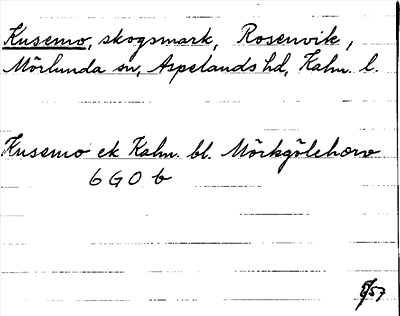 Kusemo, skogsmark, Rosenvik,
Mörlunda sn, Aspelands hd, Kalm. l.
Kusemo ek Kalm. bl. Mörkgölehorv
6 G O b
/57